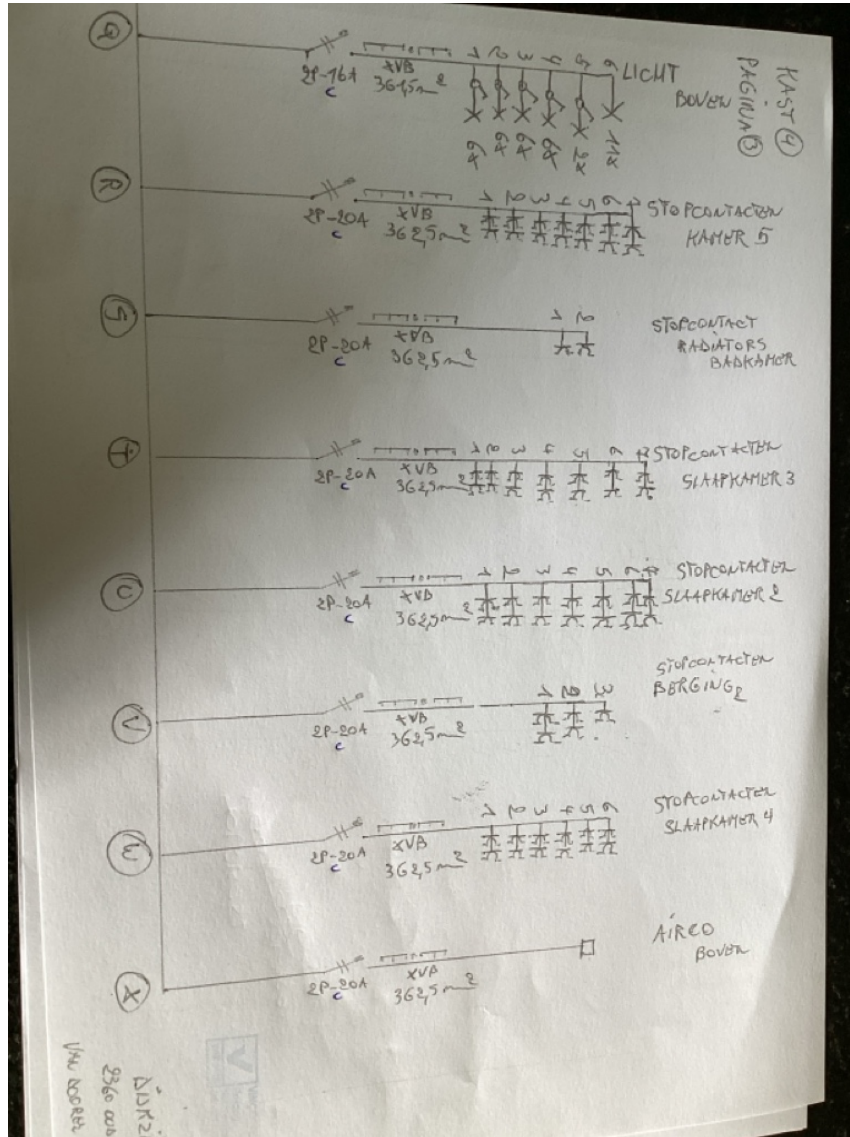 KAST 4
PAGINA 3
Q
2P-16A
C
XVB
3G1,5m²
1 2 3 4 5 6
6x 6x 6x 6x 2x 11x
LICHT
BOVEN
R
2P-20A
C
XVB
3G2,5m²
1 2 3 4 5 6 7
STOPCONTACTEN
KAMER 5
S
2P-20A
C
XVB
3G2,5m²
1 2
STOPCONTACT
RADIATORS
BADKAMER
T
2P-20A
C
XVB
3G2,5m²
1 2 3 4 5 6 7
STOPCONTACTEN
SLAAPKAMER 3
U
2P-20A
C
XVB
3G2,5m²
1 2 3 4 5 6 7
STOPCONTACTEN
SLAAPKAMER 2
V
2P-20A
C
XVB
3G2,5m²
1 2 3
STOPCONTACTEN
BERGING 2
W
2P-20A
C
XVB
3G2,5m²
1 2 3 4 5 6
STOPCONTACTEN
SLAAPKAMER 4
X
2P-20A
C
XVB
3G2,5m²
AIRCO
BOVEN
2360
VAN